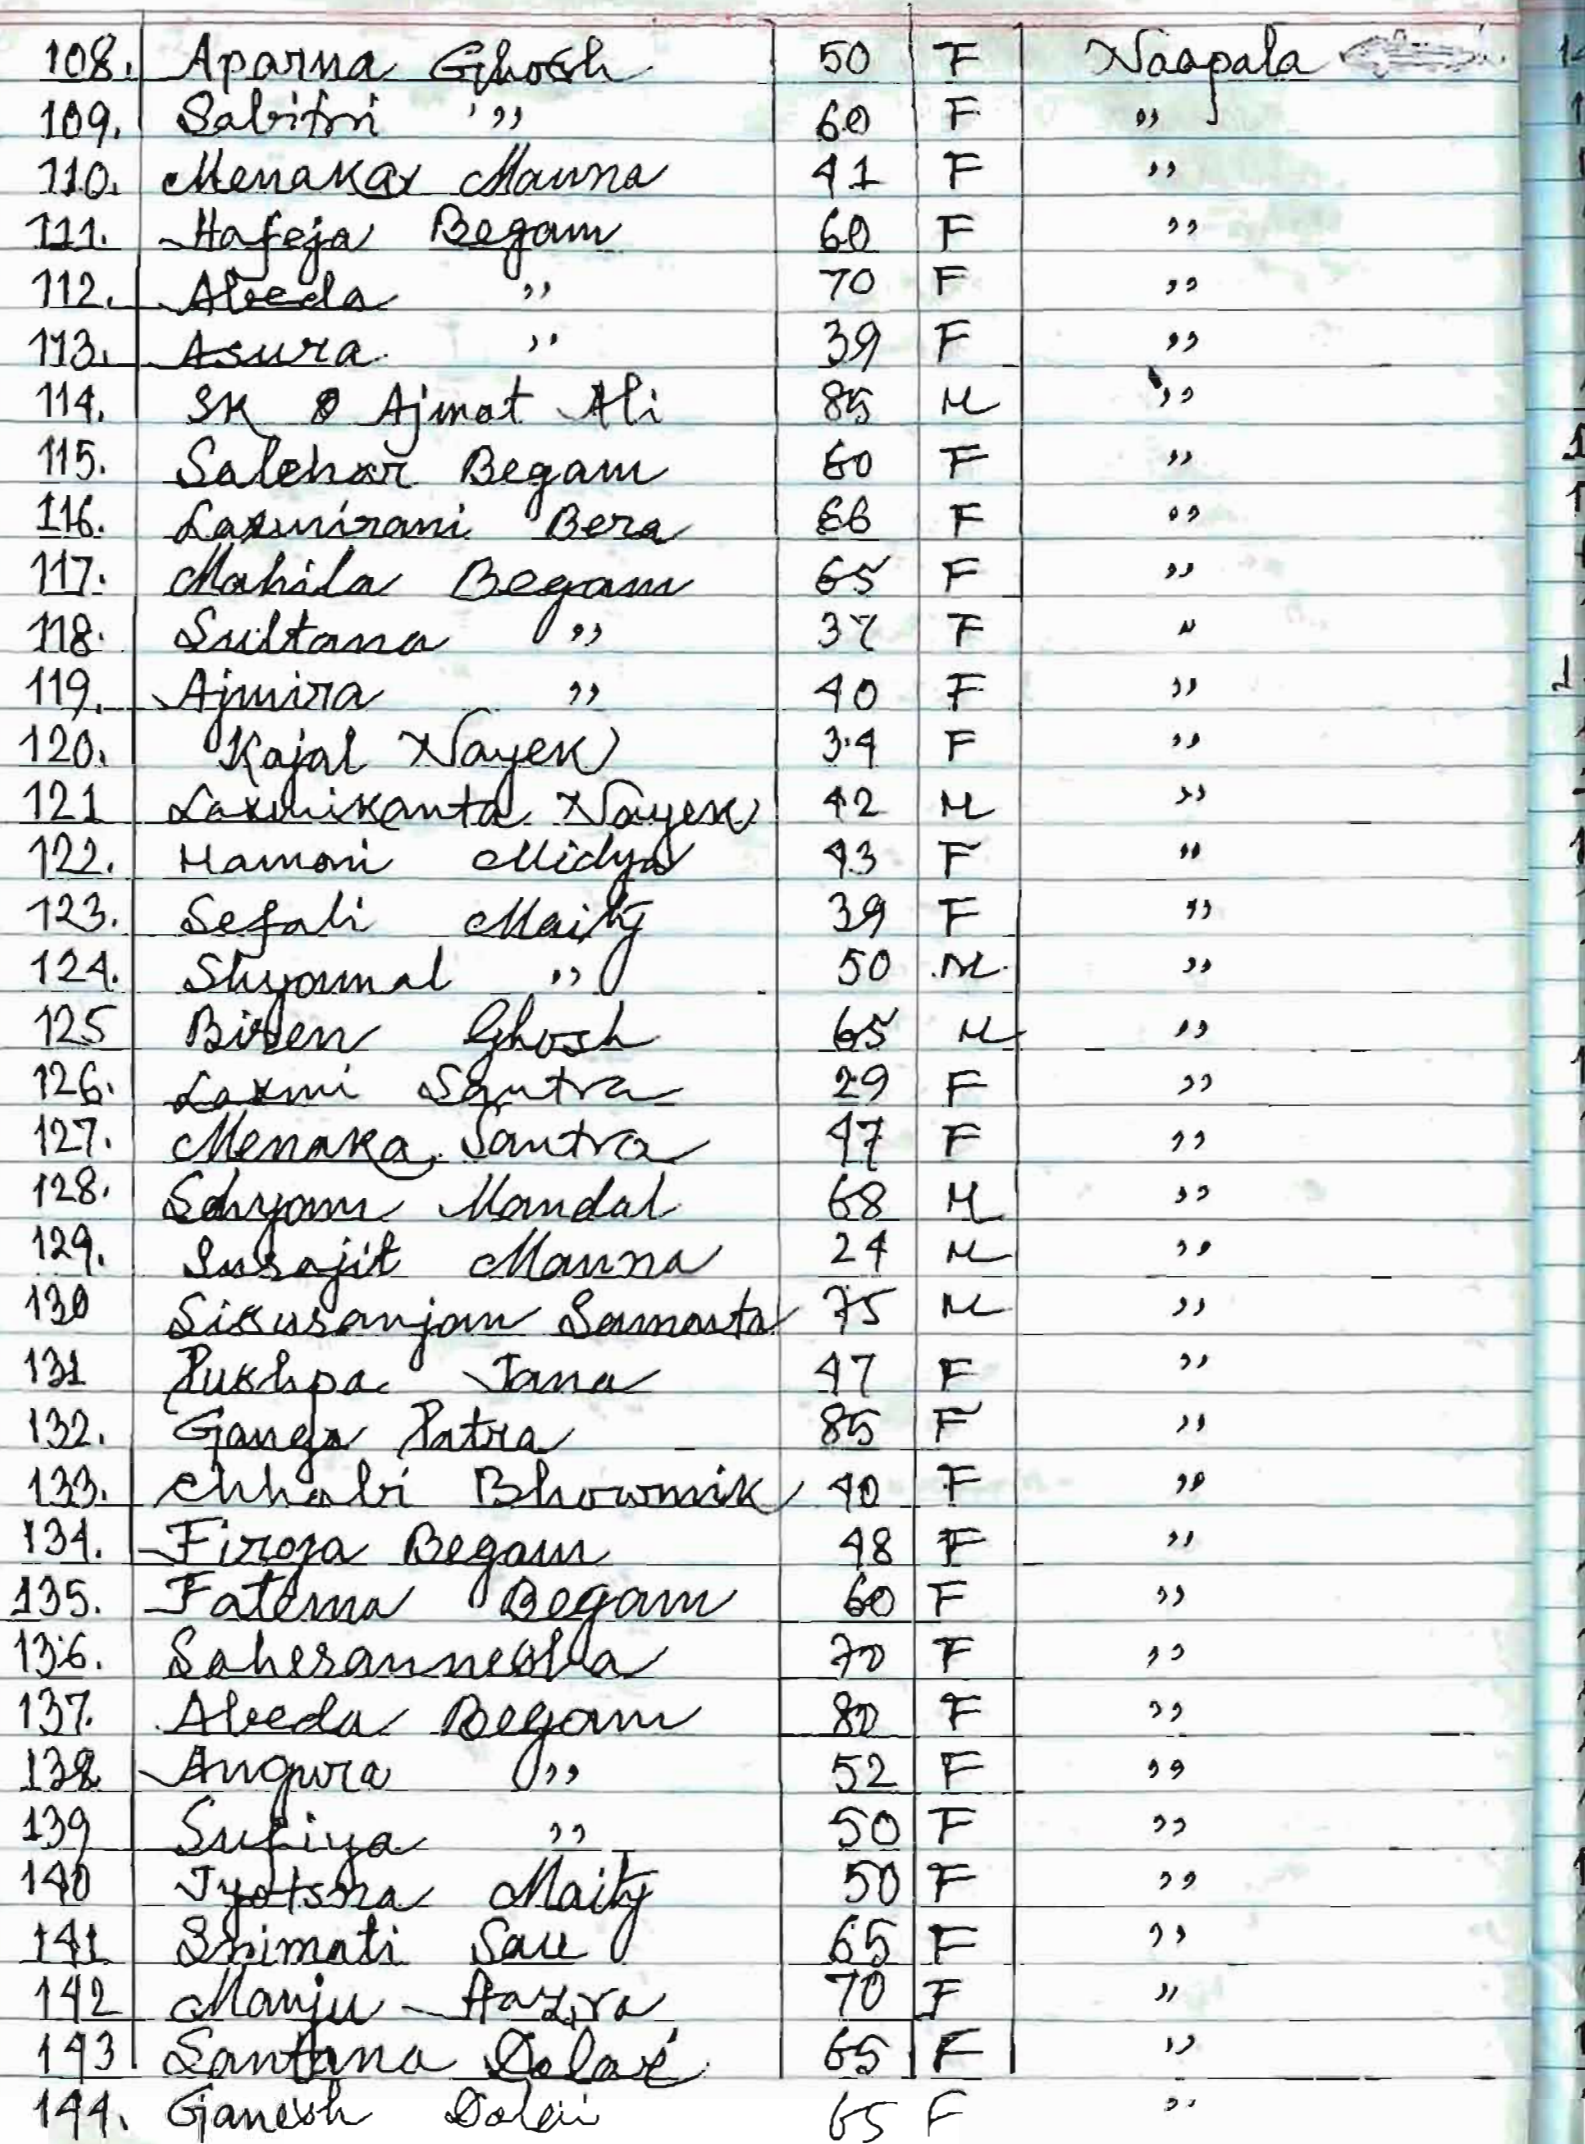 108. Aparna Ghosh 50 F Naopala
109. Sabitri " 60 F "
110. Menaka Manna 41 F "
111. Hafeja Begam 60 F "
112. Abeda " 70 F "
113. Asura " 39 F "
114. SK Ajmot Ali 85 M "
115. Salehar Begam 60 F "
116. Laxmirani Bera 66 F "
117. Mahila Begam 65 F "
118. Sultana " 37 F "
119. Ajmira " 40 F "
120. Kajal Nayek 34 F "
121 Laxmikanta Nayek 42 M "
122. Mamoni Midya 43 F "
123. Sefali Maity 39 F "
124. Shyamal " 50 M "
125 Biren Ghosh 65 M "
126. Laxmi Santra 29 F "
127. Menaka Santra 47 F "
128. Shyam Mandal 68 M "
129. Surajit Manna 24 M "
130 Sisusanjan Samanta 75 M "
131 Pushpa Jana 47 F "
132. Ganga Patra 85 F "
133. Chhabi Bhowmik 40 F "
134. Firoja Begam 48 F "
135. Fatema Begam 60 F "
136. 70 F "
137. Abeda Begam 80 F "
138 Angura " 52 F "
139 Sufiya " 50 F "
140 Jyotsna Maity 50 F "
141 Srimati Sau 65 F "
142 Manju Hazra 70 F "
143 Santana Dolai 65 F "
144. Ganesh Dolai 65 F "